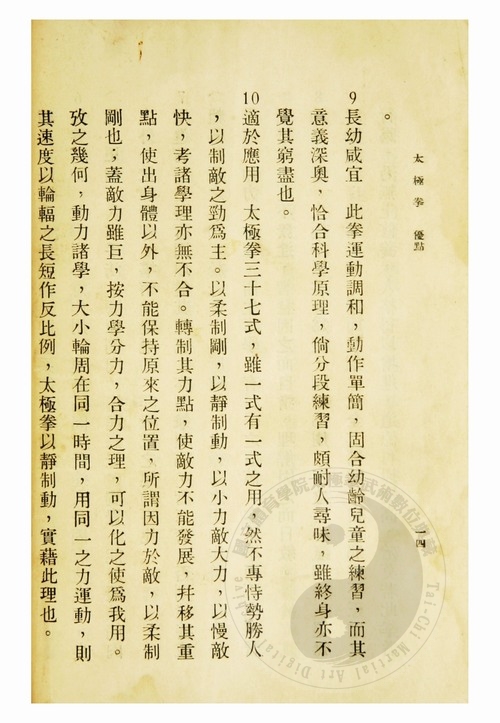 太極拳 優點
一四
。
9長幼咸宜 此拳運動調和，動作單簡，固合幼齡兒童之練習，而其
意義深奧，恰合科學原理，倘分段練習，頗耐人尋味，雖終身亦不
覺其窮盡也。
10適於應用 太極拳三十七式，雖一式有一式之用，然不專恃勢勝人
，以制敵之勁為主。以柔制剛，以靜制動，以小力敵大力，以慢敵
快，考諸學理亦無不合。轉制其力點，使敵力不能發展，幷移其重
點，使出身體以外，不能保持原來之位置，所謂因力於敵，以柔制
剛也；蓋敵力雖巨，按力學分力，合力之理，可以化之使為我用。
攷之幾何，動力諸學，大小輪周在同一時間，用同一之力運動，則
其速度以輪輻之長短作反比例，太極拳以靜制動，實藉此理也。
Tai-Chi Martial Art Digital